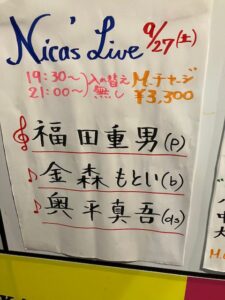 Nica's Live 9/27(土)
19:30〜 入れ替え M.チャージ
21:00〜 無し ¥3,300
福田重男(p)
金森もとい(b)
奥平真吾(ds)